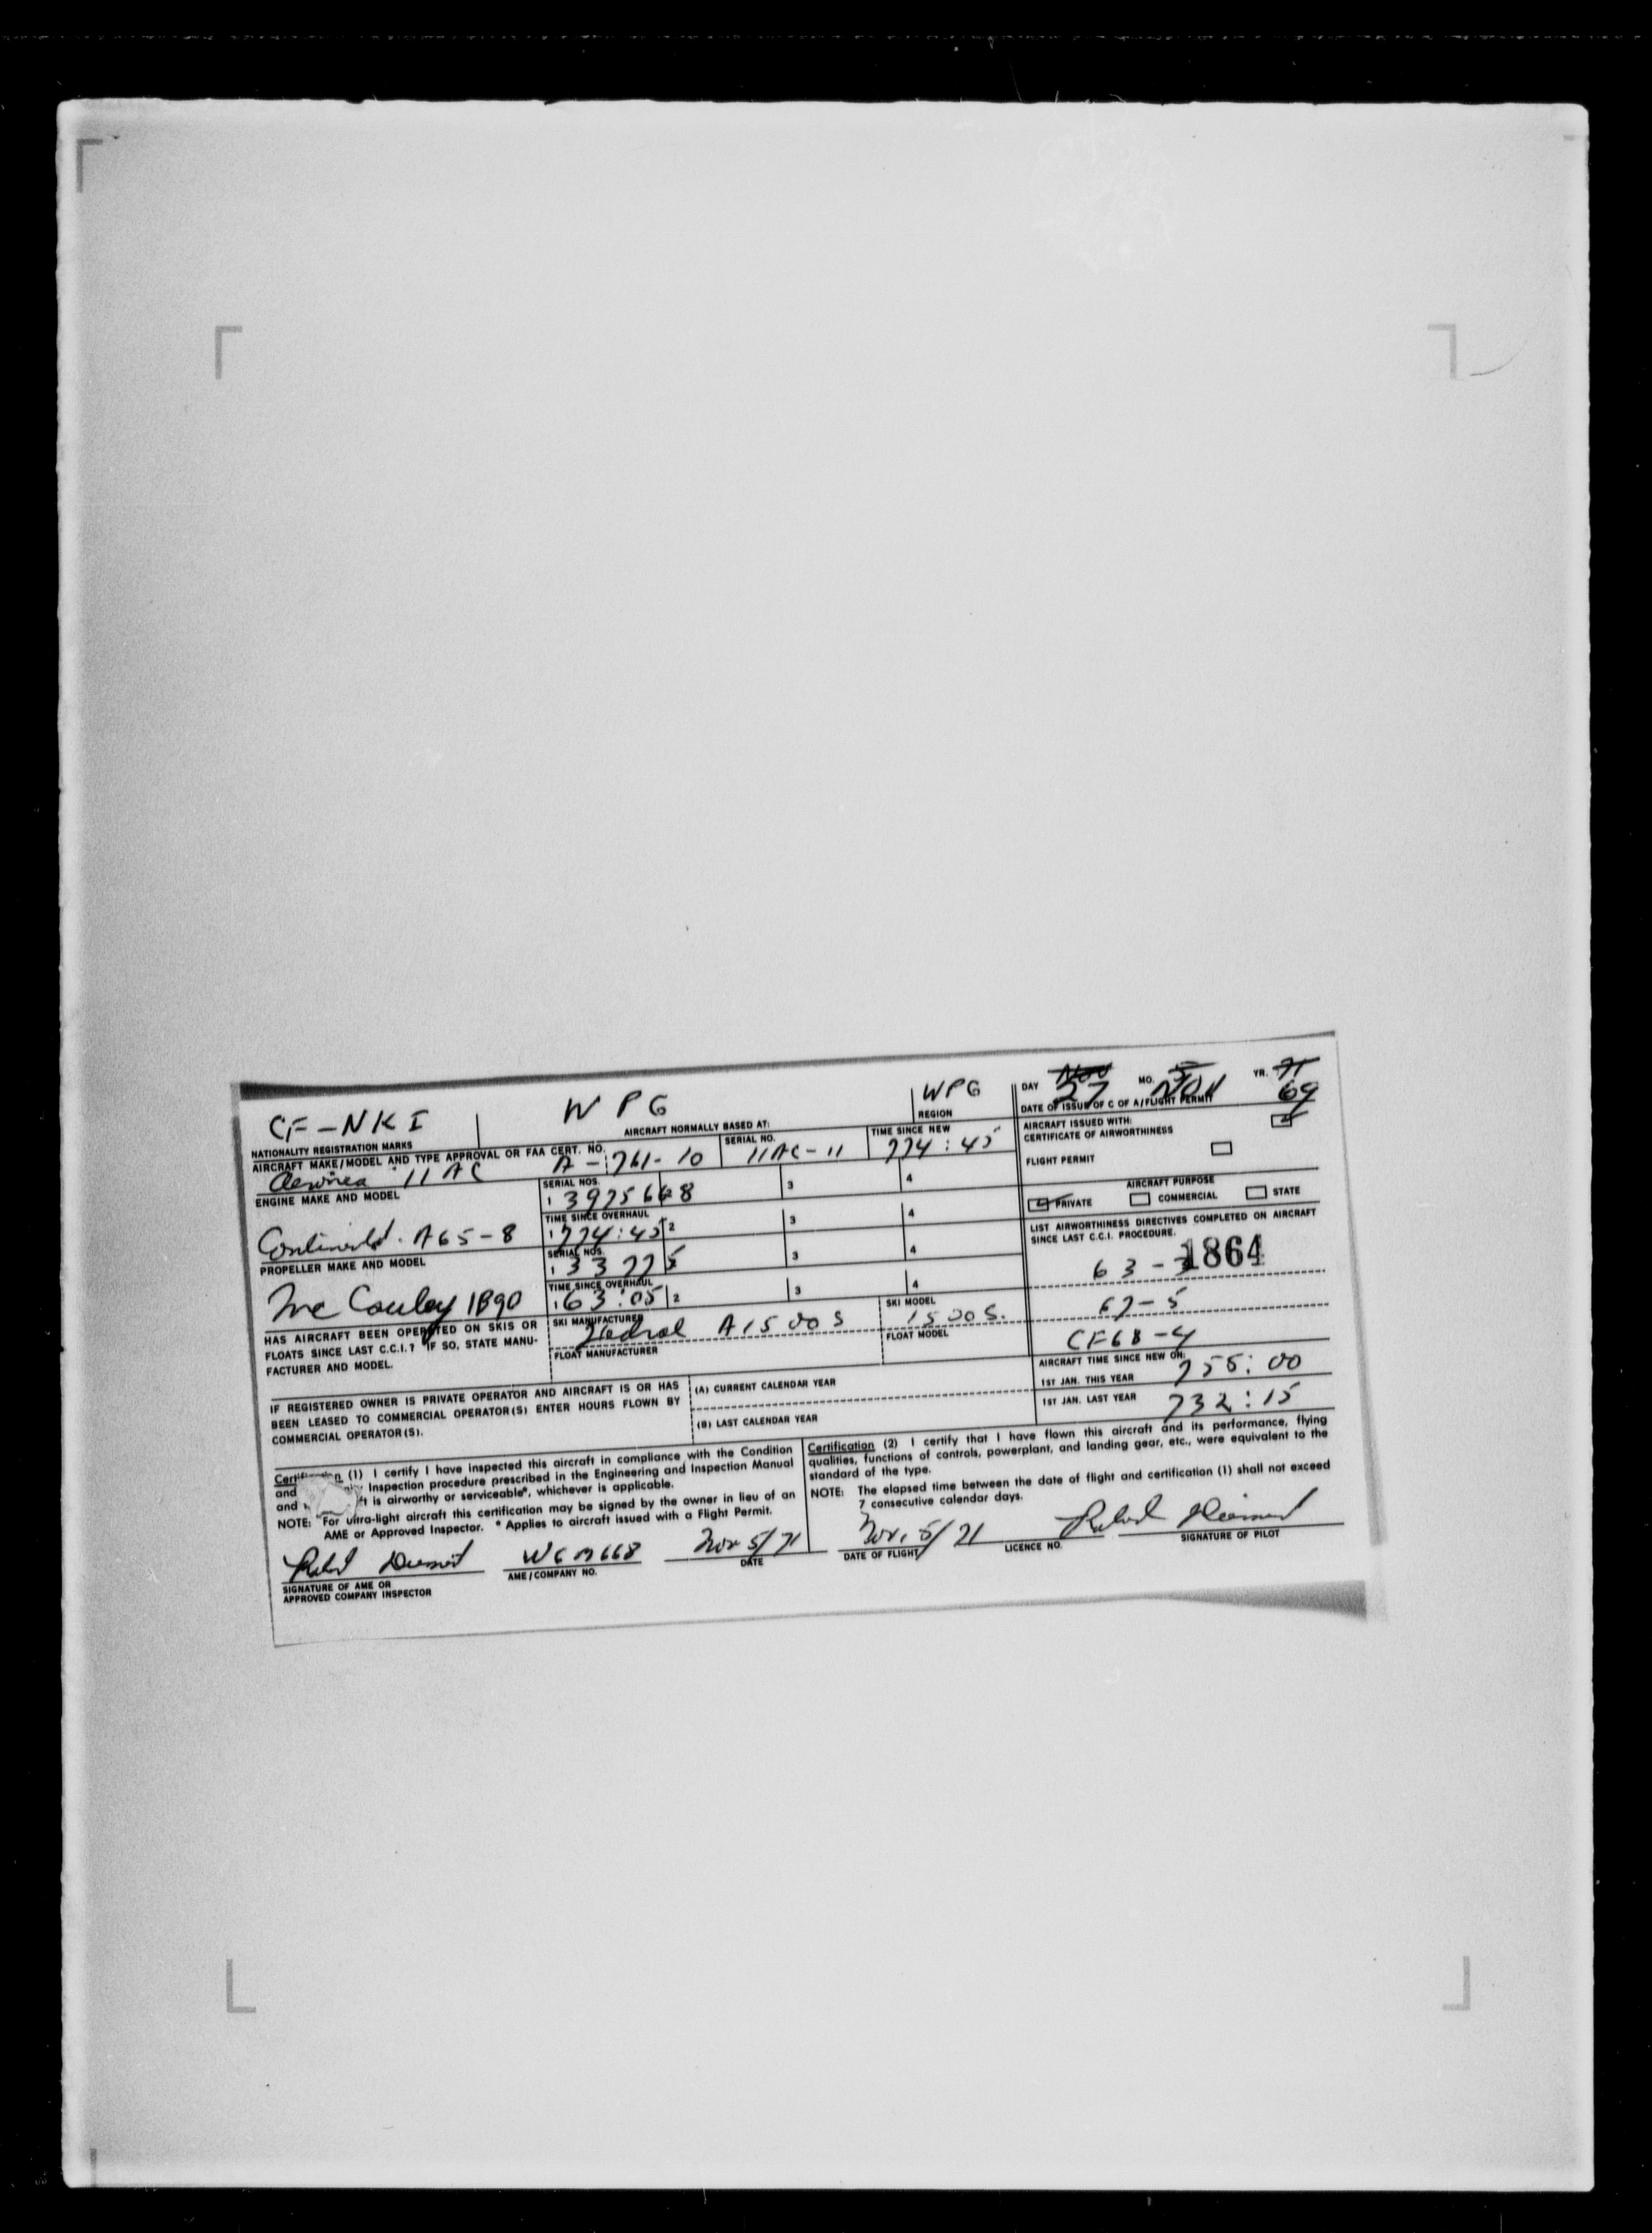 CF-NKI WPG WPG DAY 27 MO. NOV YR. 71 69
NATIONALITY REGISTRATION MARKS AIRCRAFT NORMALLY BASED AT: REGION DATE OF ISSUE OF C OF A/FLIGHT PERMIT
AIRCRAFT MAKE/MODEL AND TYPE APPROVAL OR FAA CERT. NO. SERIAL NO. TIME SINCE NEW
11 AC A-761-10 11AC-11 774:45
AIRCRAFT ISSUED WITH:
CERTIFICATE OF AIRWORTHINESS
FLIGHT PERMIT
ENGINE MAKE AND MODEL SERIAL NOS.
1 3975668 3 4
TIME SINCE OVERHAUL
Continental. A65-8 1 774:45 2 3 4
AIRCRAFT PURPOSE
PRIVATE COMMERCIAL STATE
PROPELLER MAKE AND MODEL SERIAL NOS.
1 33775 3 4
TIME SINCE OVERHAUL
Mc Cauley 1B90 1 63:05 2 3 4
LIST AIRWORTHINESS DIRECTIVES COMPLETED ON AIRCRAFT
SINCE LAST C.C.I. PROCEDURE.
63-3 1864
67-5
CF68-4
HAS AIRCRAFT BEEN OPERATED ON SKIS OR
FLOATS SINCE LAST C.C.I.? IF SO, STATE MANU-
FACTURER AND MODEL.
SKI MANUFACTURER A1500S SKI MODEL 1500S.
FLOAT MANUFACTURER FLOAT MODEL
AIRCRAFT TIME SINCE NEW ON:
1ST JAN. THIS YEAR 755:00
1ST JAN. LAST YEAR 732:15
IF REGISTERED OWNER IS PRIVATE OPERATOR AND AIRCRAFT IS OR HAS
BEEN LEASED TO COMMERCIAL OPERATOR(S) ENTER HOURS FLOWN BY
COMMERCIAL OPERATOR(S).
(A) CURRENT CALENDAR YEAR
(B) LAST CALENDAR YEAR
Certification (1) I certify I have inspected this aircraft in compliance with the Condition
and Inspection procedure prescribed in the Engineering and Inspection Manual
and is airworthy or serviceable*, whichever is applicable.
NOTE: For ultra-light aircraft this certification may be signed by the owner in lieu of an
AME or Approved Inspector. * Applies to aircraft issued with a Flight Permit.
WGM668 Nov 5/71
SIGNATURE OF AME OR
APPROVED COMPANY INSPECTOR
AME/COMPANY NO. DATE
Certification (2) I certify that I have flown this aircraft and its performance, flying
qualities, functions of controls, powerplant, and landing gear, etc., were equivalent to the
standard of the type.
NOTE: The elapsed time between the date of flight and certification (1) shall not exceed
7 consecutive calendar days.
Nov. 5/71
DATE OF FLIGHT LICENCE NO. SIGNATURE OF PILOT